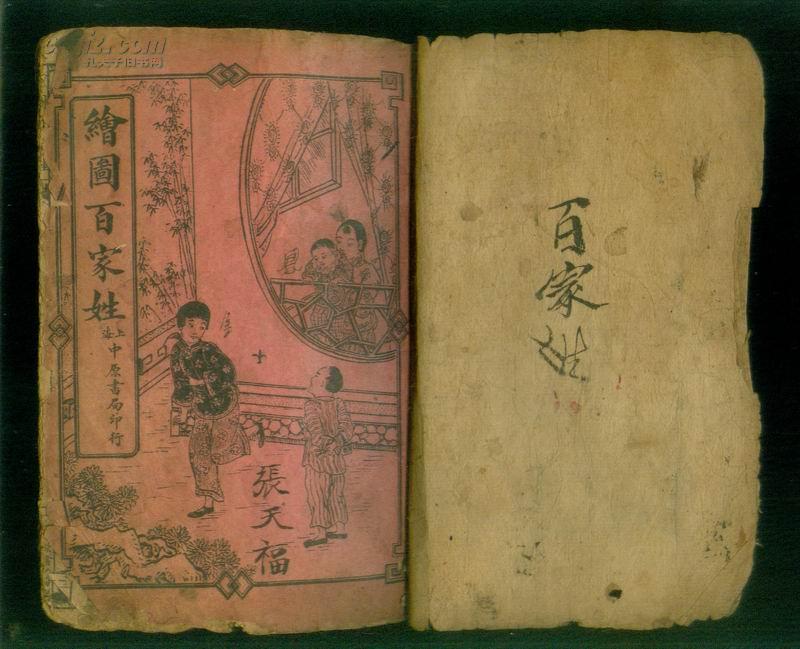 孔夫子旧书网
繪圖百家姓
上海
中原書局印行
張天福
百家姓